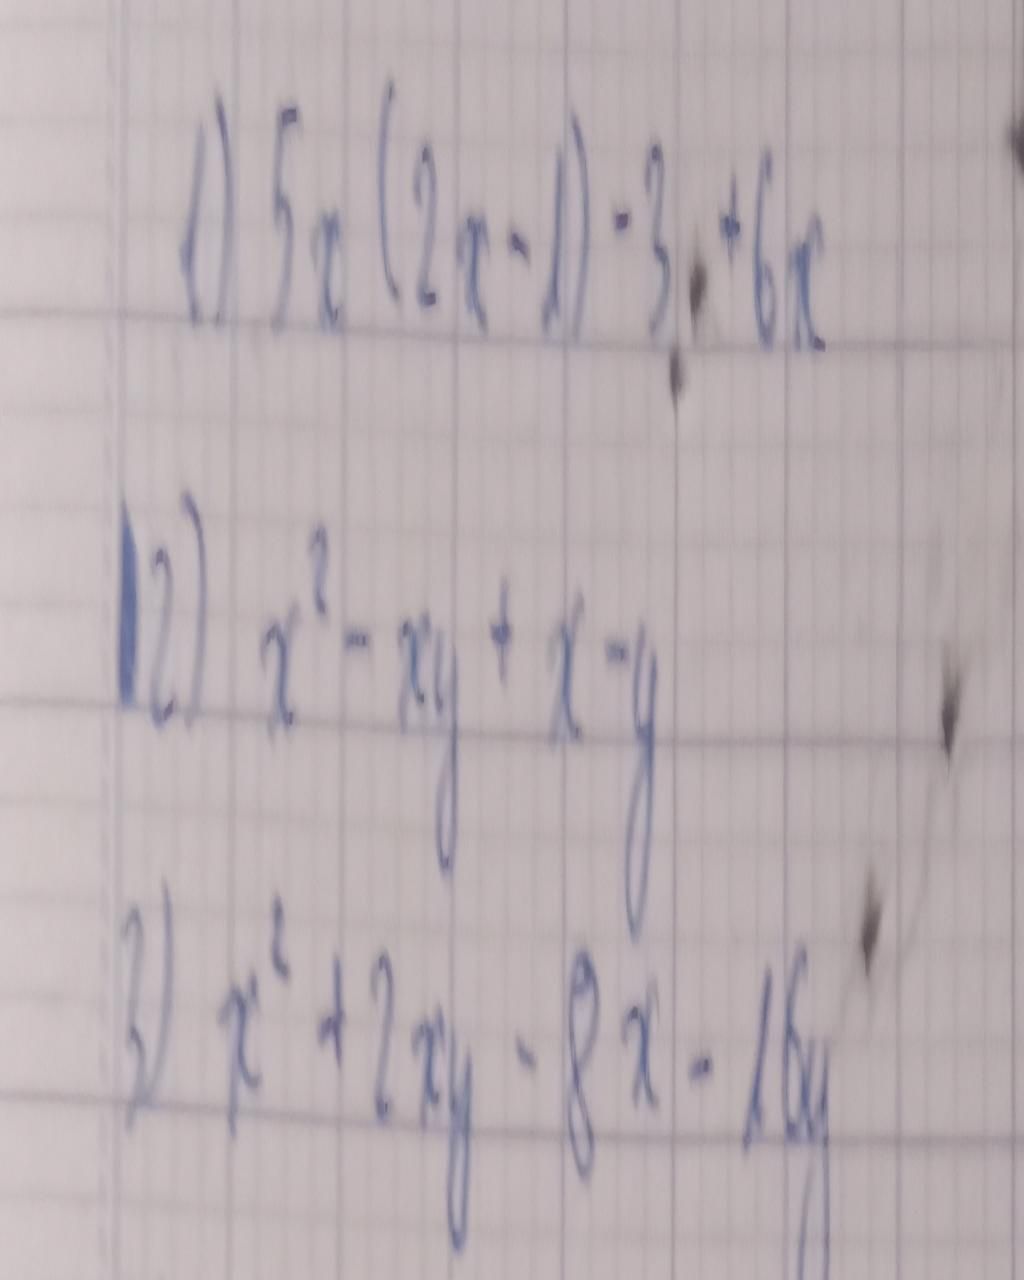 1) 5x (2x - 1) - 3 + 6x
2) x² - xy + x - y
3) x² + 2xy - 8x - 16y